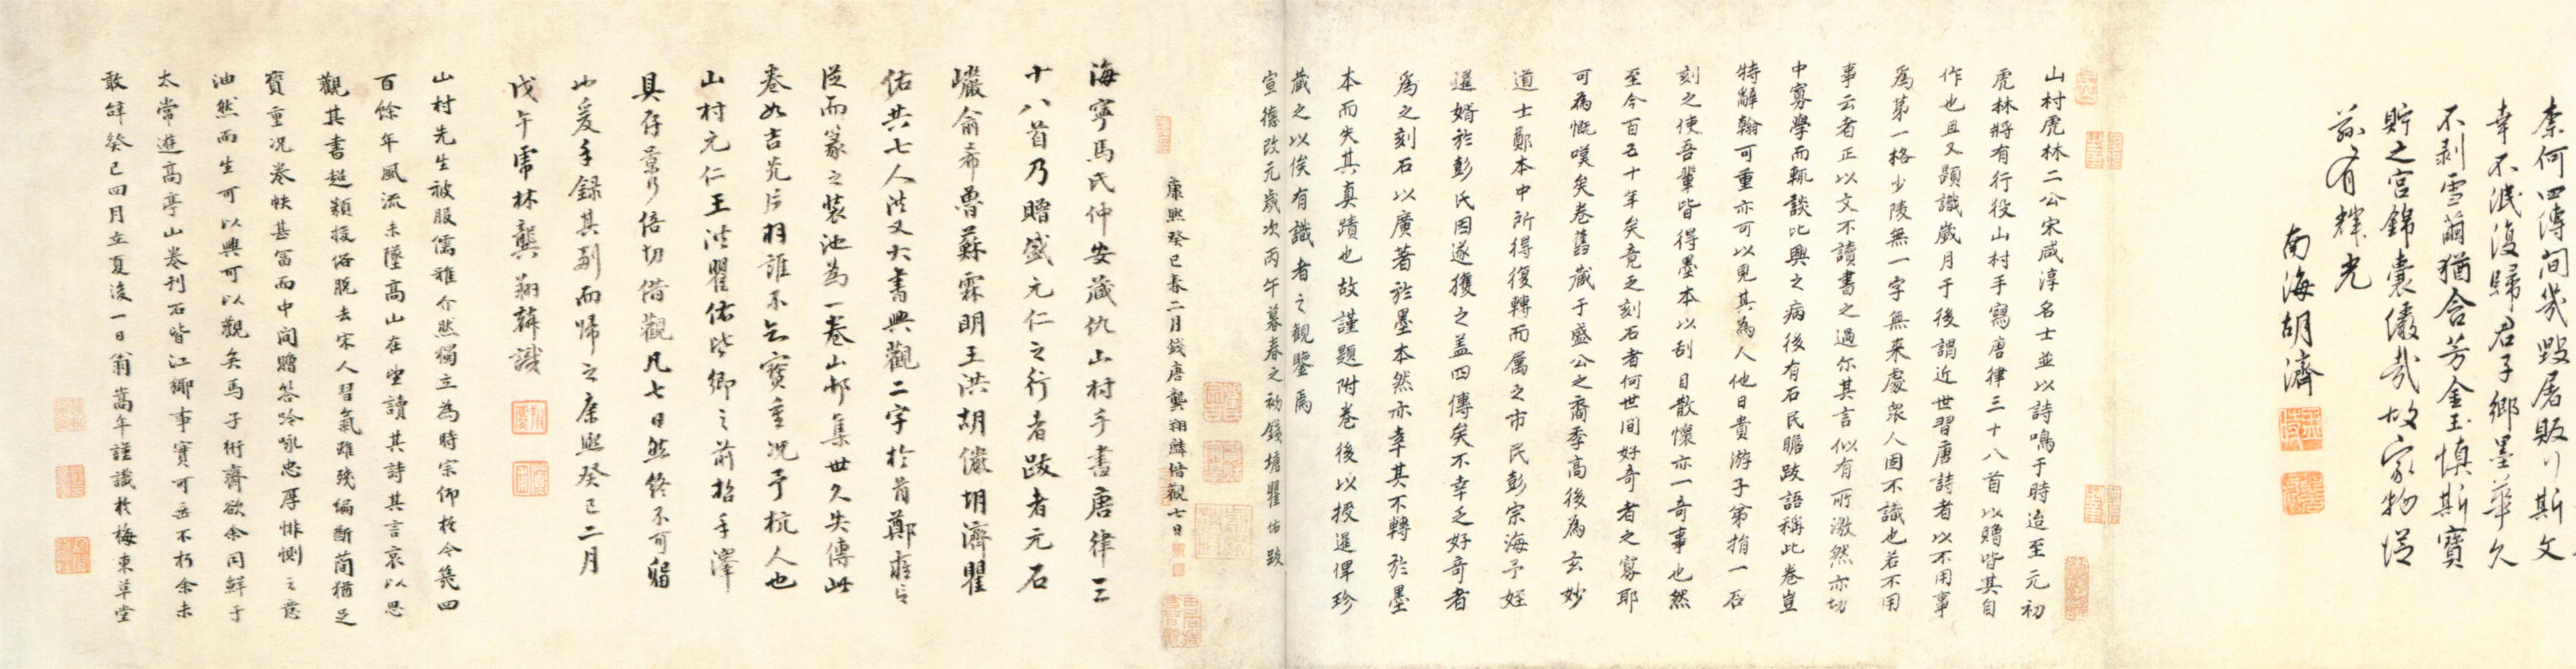 柰何四傳間幾毀屠販斯文
幸不泯復歸君子鄉墨華久
不剥雪繭猶含芳金玉慎斯寶
貯之宮錦囊儼哉故家物從
茲有輝光
南海胡濟
山村虎林二公宋咸淳名士並以詩鳴于時迨至元初
虎林將有行役山村手寫唐律三十八首以贈皆其自
作也且又題識歲月于後謂近世習唐詩者以不用事
爲第一格少陵無一字無来處衆人固不識也若不用
事云者正以文不讀書之過尔其言似有所激然亦切
中寡學而輒談比興之病後有石民瞻跋語稱此卷豈
特辭翰可重亦可以見其為人他日貴游子弟捐一石
刻之使吾輩皆得墨本以刮目散懷亦一奇事也然
至今百五十年矣竟乏刻石者何世間好奇者之寡耶
可為慨嘆矣卷舊藏于盛公之裔季高後為玄妙
道士鄭本中所得復轉而属之市民彭宗海予姪
暹婿於彭氏因遂獲之盖四傳矣不幸乏好奇者
爲之刻石以廣著於墨本然亦幸其不轉於墨
本而失其真蹟也故謹題附卷後以授暹俾珍
藏之以俟有識者之觀鑒焉
宣德改元歲次丙午暮春之初錢塘瞿佑跋
康熙癸巳春二月錢唐龔翔麟借觀七日
海寧馬氏仲安藏仇山村手書唐律三
十八首乃贈盛元仁之行者跋者元石
巗俞希魯蘇霖明王洪胡儼胡濟瞿
佑共七人洪又大書興觀二字於首鄭雍言
從而篆之裝池為一卷山邨集世久失傳此
卷如吉光片羽誰不知寶重况予杭人也
山村元仁王洪瞿佑皆鄉之前哲手澤
具存景仰倍切借觀凡七日然終不可留
也爰手録其副而歸之康熙癸巳二月
戊午虎林龔翔麟識
山村先生被服儒雅介然獨立為時宗仰於今幾四
百餘年風流未墜高山在望讀其詩其言哀以思
觀其書超類拔俗脫去宋人習氣雖殘編斷簡猶足
寶重况卷帙甚富而中間贈答吟咏忠厚悱惻之意
油然而生可以興可以觀矣馬子衎齋欲余同鮮于
太常遊高亭山卷刊石皆江鄉事實可垂不朽余未
敢辭癸巳四月立夏後一日翁嵩年謹識於梅東草堂